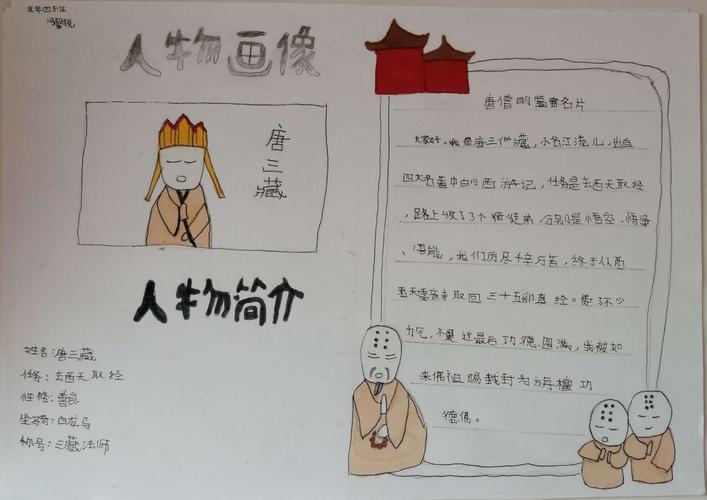 五年四班
冯
人物画像
唐三藏
人物简介
姓名:唐三藏
任务:去西天取经
性格:善良
坐骑:白龙马
称号:三藏法师
唐僧的 名片
大家好,我是唐三藏,小名江流儿,出自
四大名著中的西游记,任务是去西天取经
,路上收了3个徒弟,分别是悟空、悟净
、悟能,我们历尽千辛万苦,终于从西
天雷音寺取回三十五部真经。费了不少
力气,不过最后功德圆满,我被如
来佛祖赐我封为旃檀功
德佛。